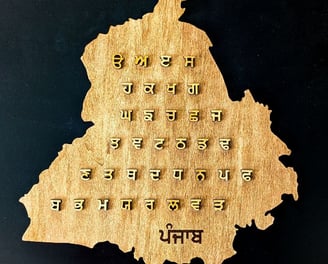 ੳ ਅ ੲ ਸ
ਹ ਕ ਖ ਗ
ਘ ਙ ਚ ਛ ਜ
ਝ ਞ ਟ ਠ ਡ ਢ
ਣ ਤ ਥ ਦ ਧ ਨ ਪ ਫ
ਬ ਭ ਮ ਯ ਰ ਲ ਵ ੜ
ਪੰਜਾਬ